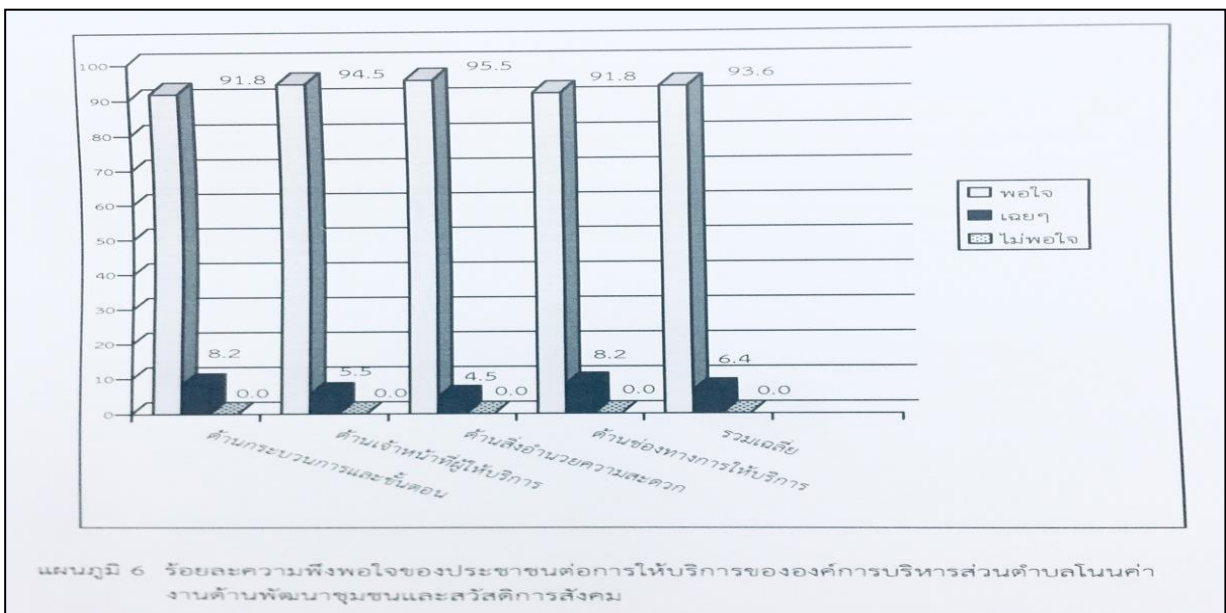 100
90
80
70
60
50
40
30
20
10
0
91.8
94.5
95.5
91.8
93.6
8.2
0.0
5.5
0.0
4.5
0.0
8.2
0.0
6.4
0.0
ด้านกระบวนการและขั้นตอน
ด้านเจ้าหน้าที่ผู้ให้บริการ
ด้านสิ่งอำนวยความสะดวก
ด้านช่องทางการให้บริการ
รวมเฉลี่ย
พอใจ
เฉยๆ
ไม่พอใจ
แผนภูมิ 6 ร้อยละความพึงพอใจของประชาชนต่อการให้บริการขององค์การบริหารส่วนตำบลโนนค่า
งานด้านพัฒนาชุมชนและสวัสดิการสังคม